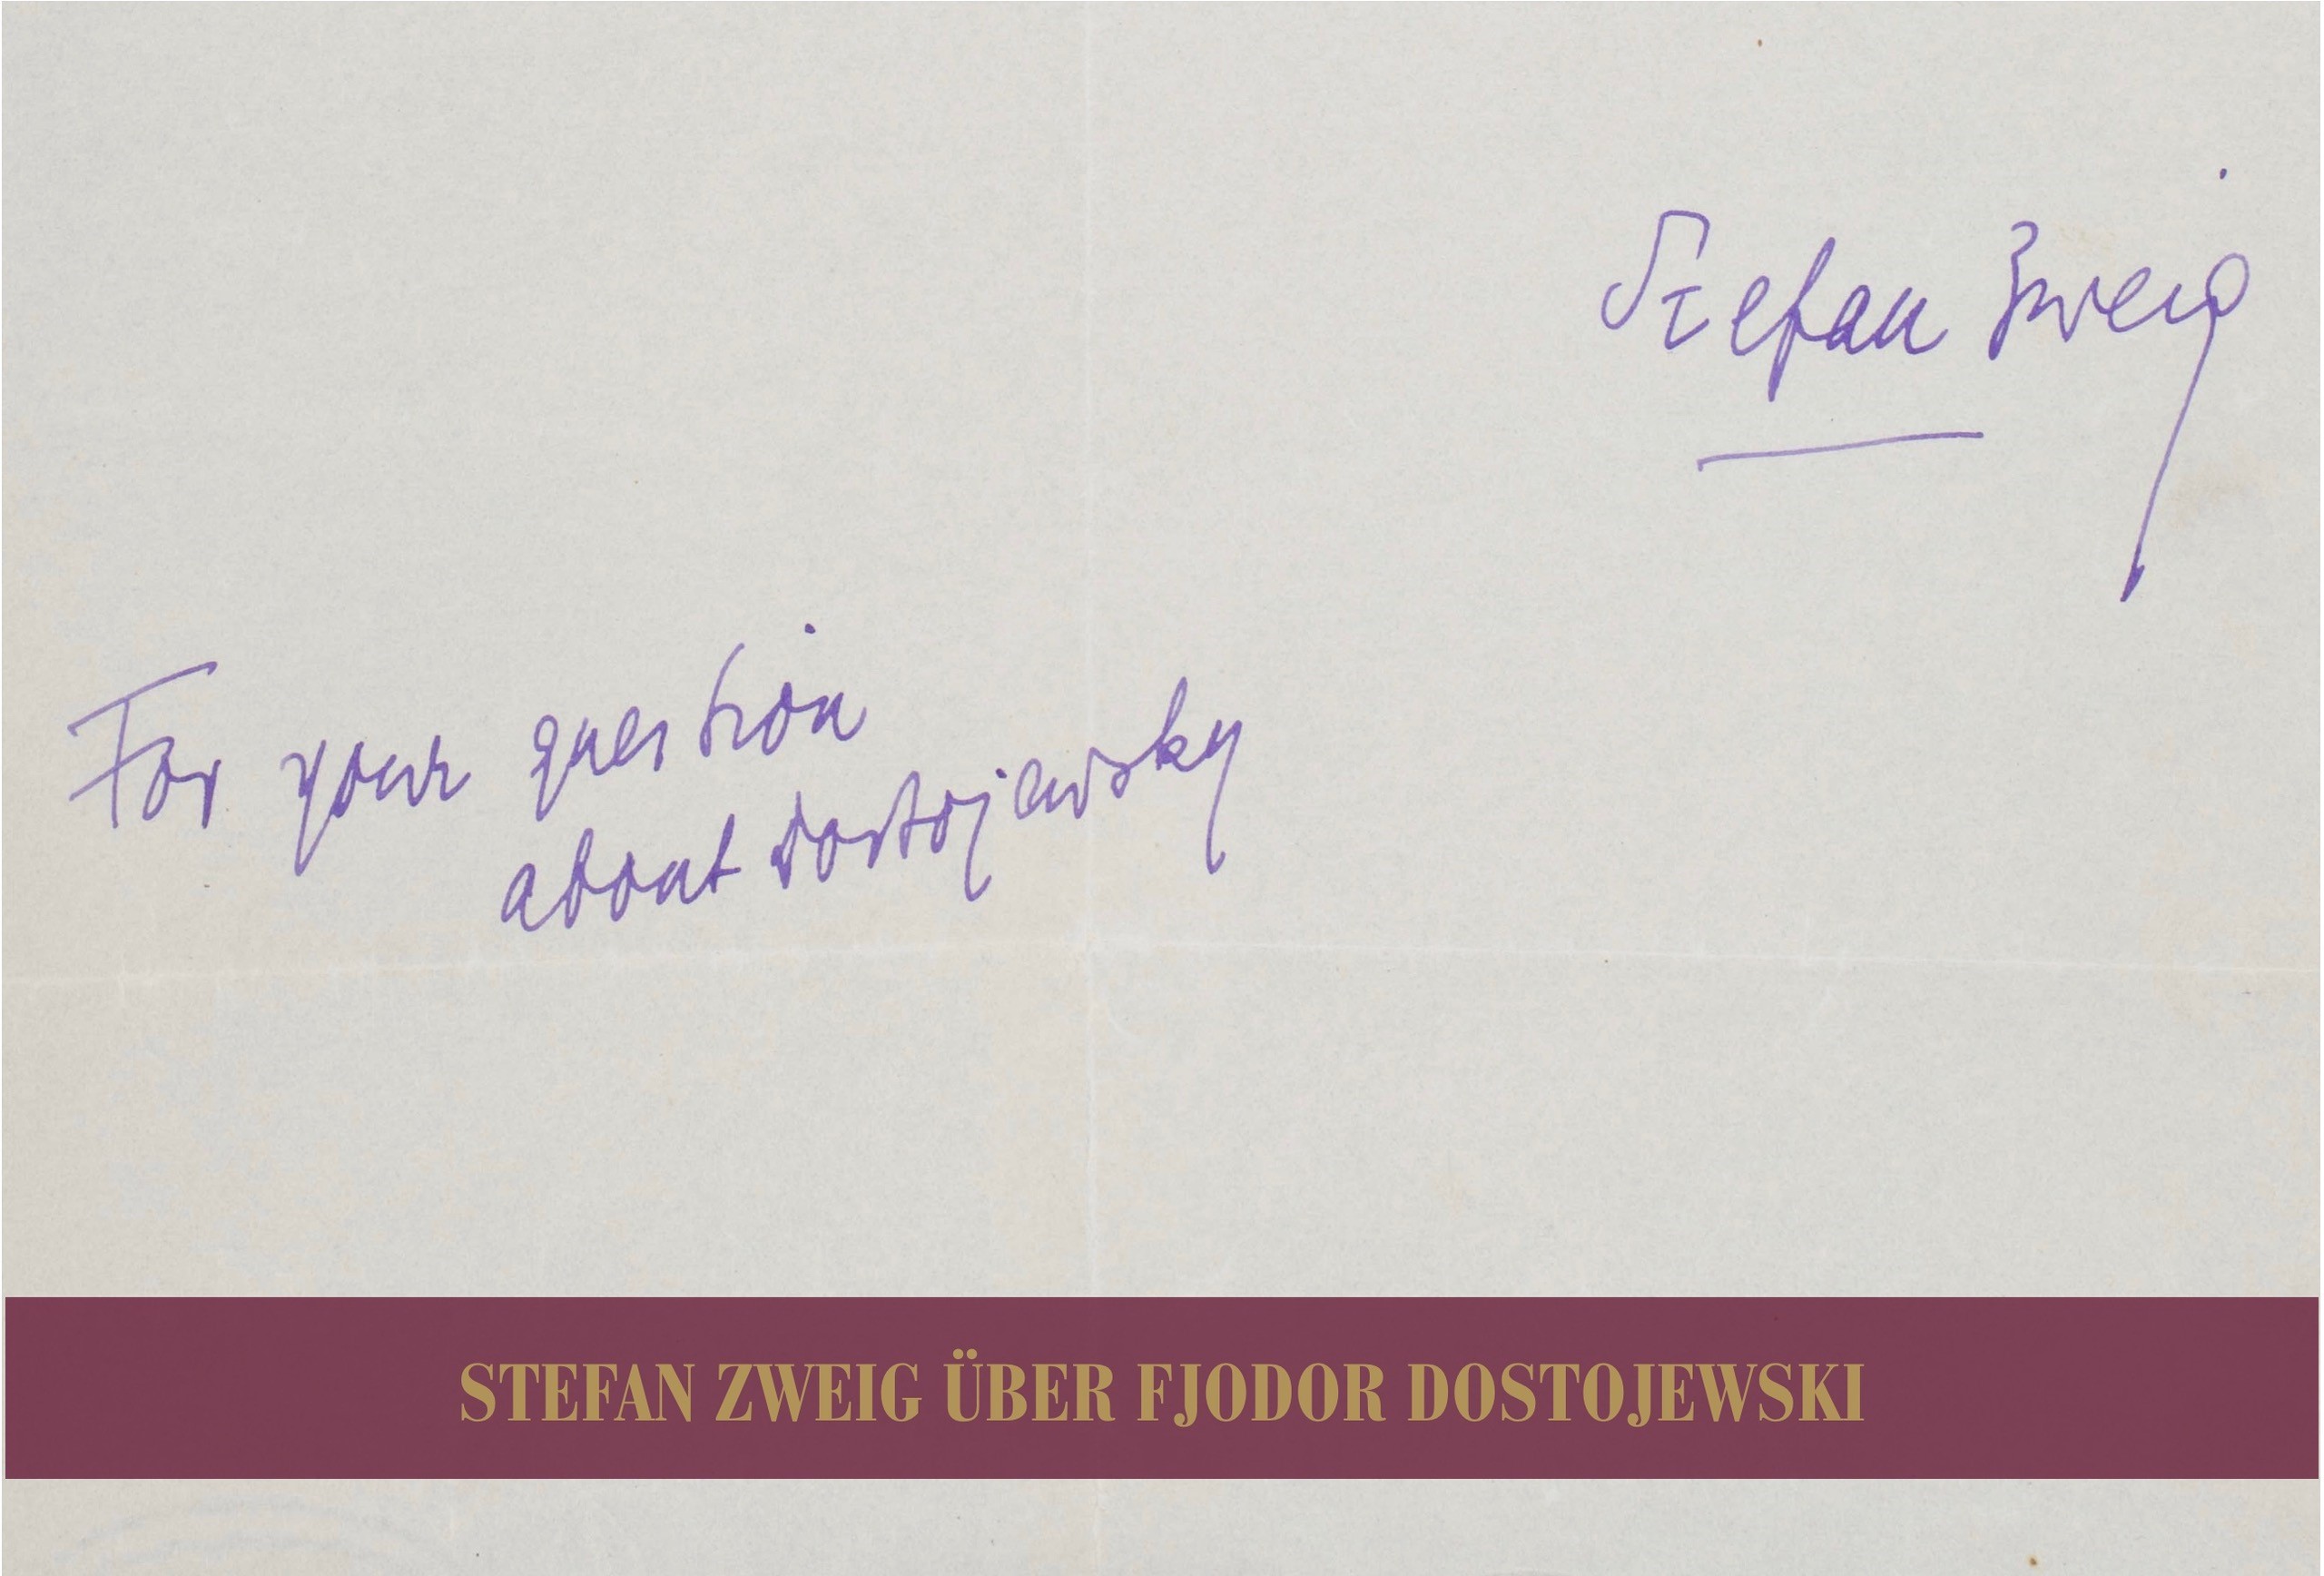 Stefan Zweig
For your question
about Dostojewsky
STEFAN ZWEIG ÜBER FJODOR DOSTOJEWSKI